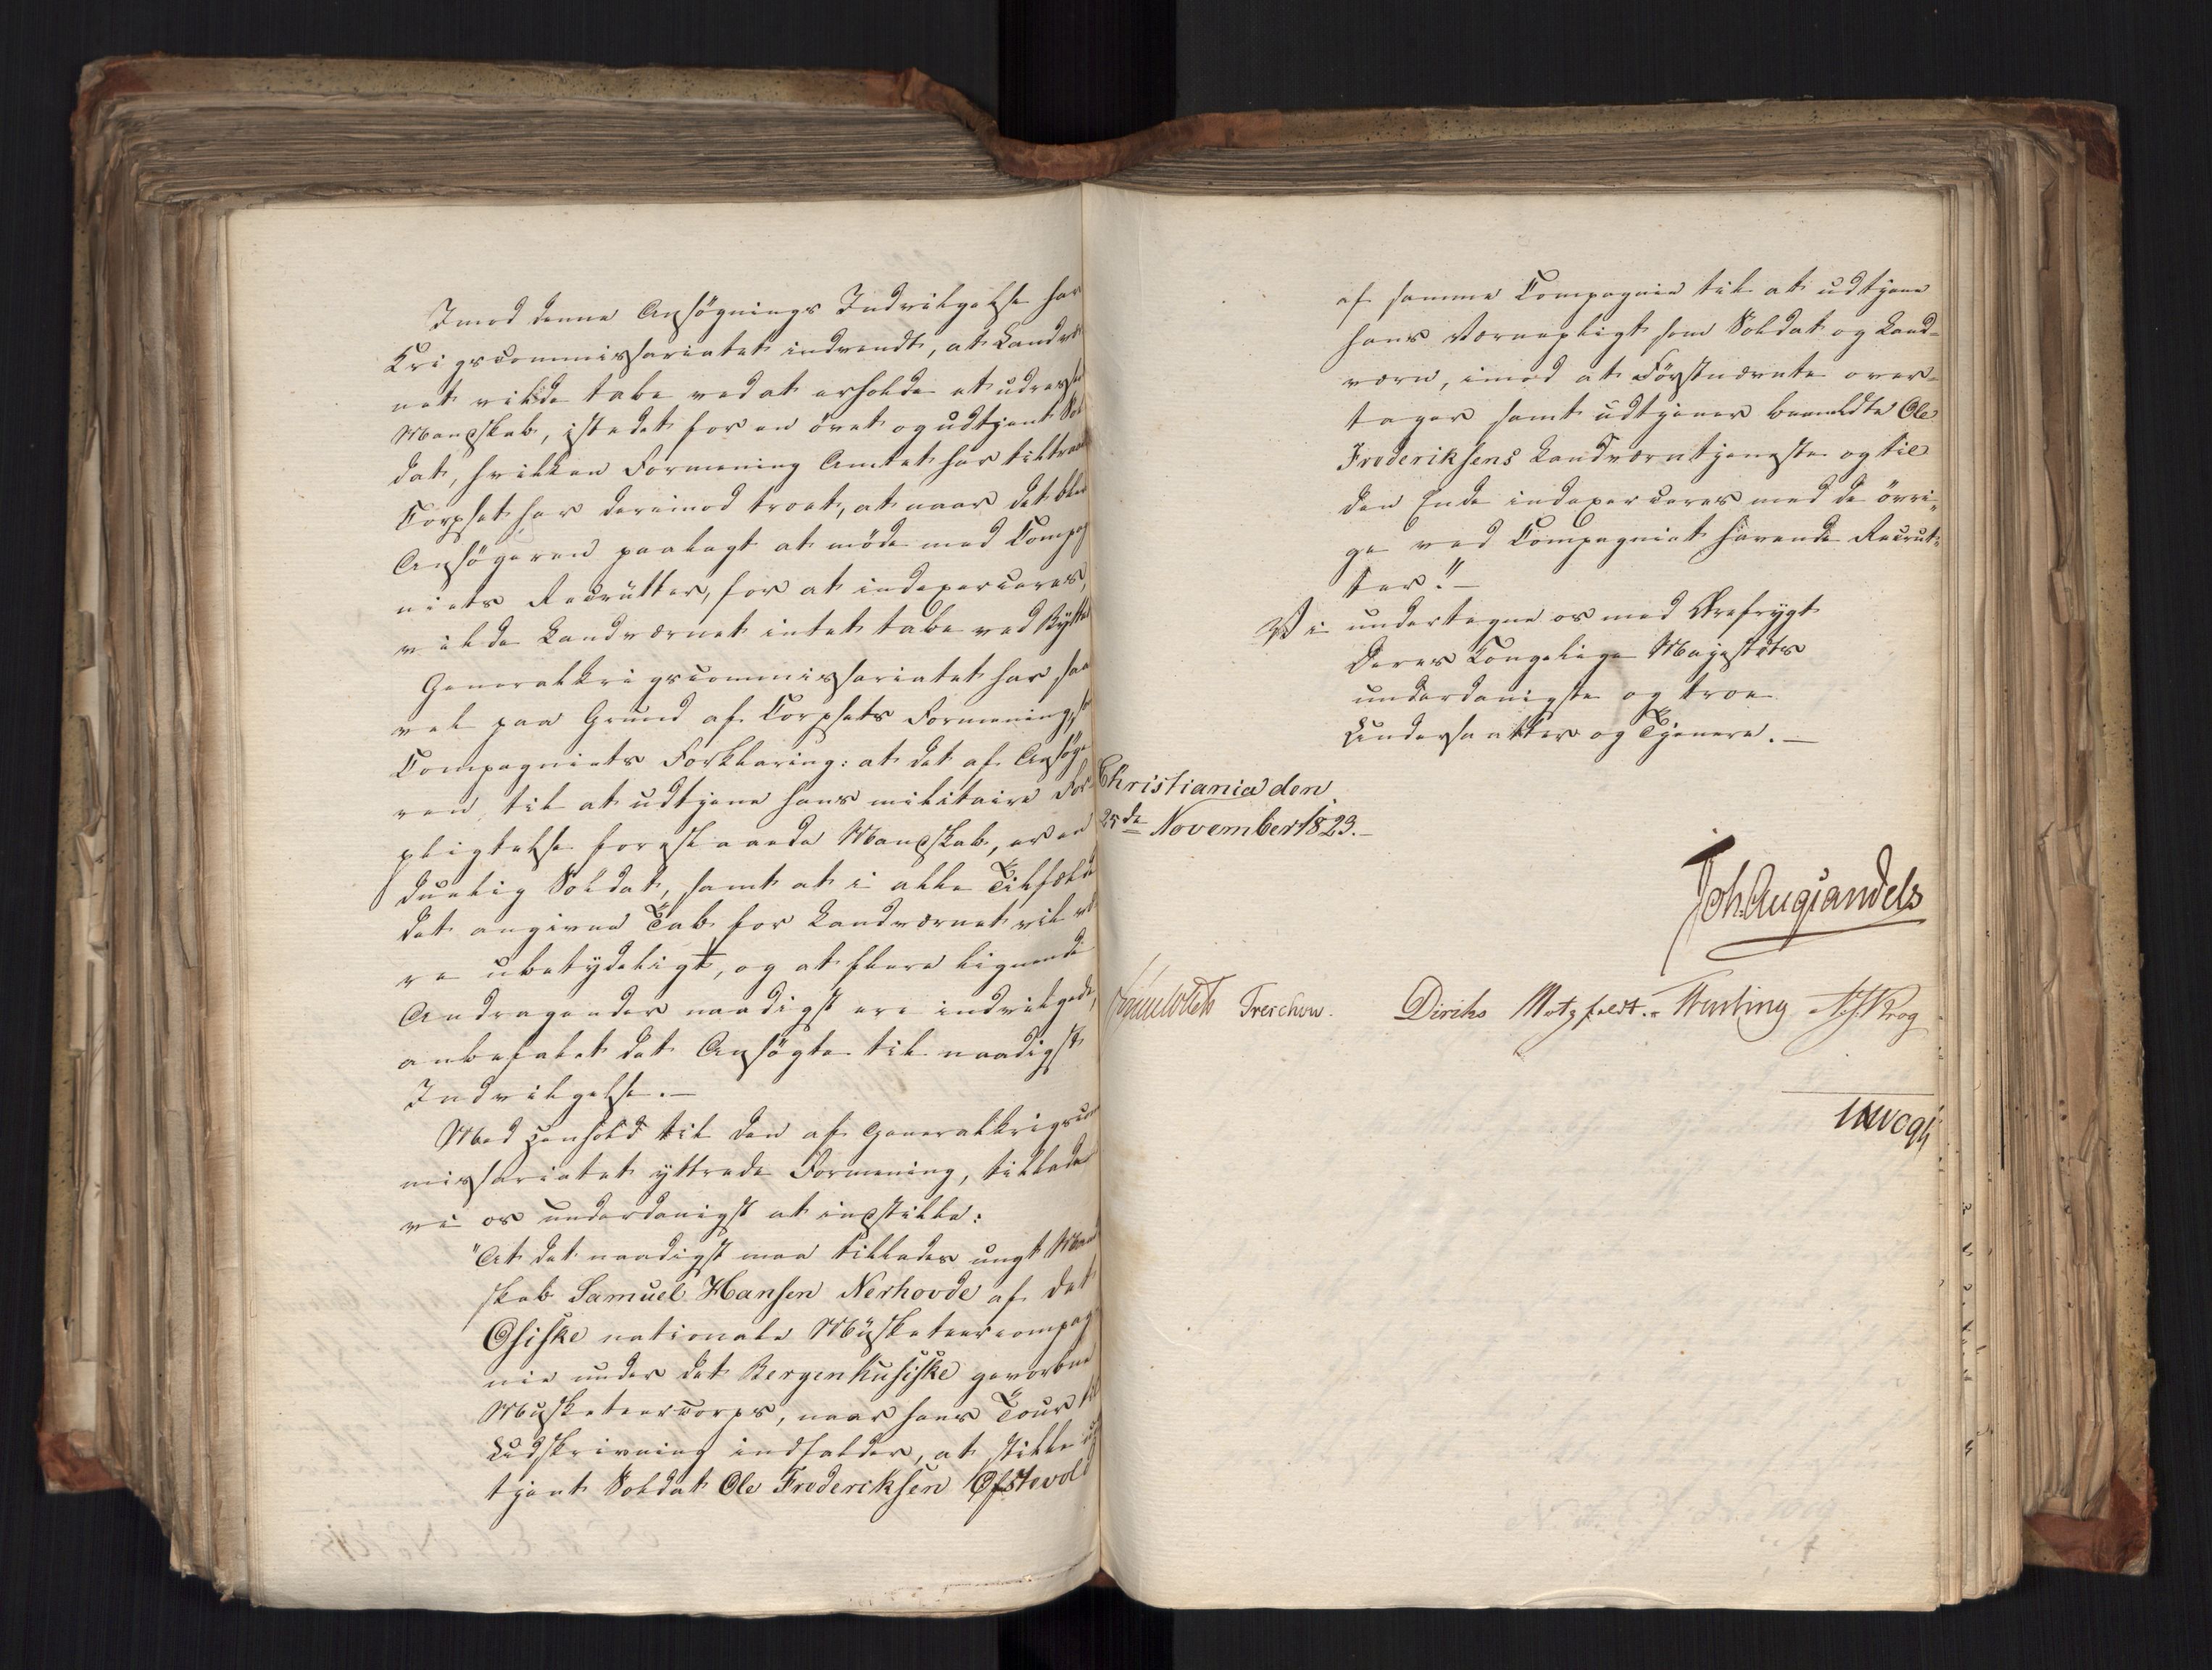 Imod denne Ansøgnings Indvilgelse har
Krigscommissariatet indvendt, at Landvær
net vilde tabe ved at erholde et udresse
Mandskab, istedet for en övet og udtjent Sol
dat, hvilken Formening Amtet har tiltraad
Corpset har derimod troet, at naar det blev
Ansögeren paalagt at möde med Compag
niets Recrütter, for at indexerceres,
vilde Landværnet intet tabe ved Byttet
Generalkrigscommissariatet har, saa
vel paa Grund af Corpsets Formening, som
Compagniets Forklaring: at det af Ansøge
ren, til at udtjene hans militaire For
pligtelse foreslaaede Mandskab, er en
duelig Soldat, samt at i alle Tilfælde
det angivne Tab for Landværnet vil væ
re ubetydeligt, og at flere lignende
Andragender naadigst ere indvilgede,
anbefalet det Ansögte til naadigst
Indvilgelse.—
Med Henhold til den af Generalkrigscom
missariatet yttrede Formening, tillade
vi os underdanigst at indstille:
"At det naadigst maa tillades ungt Mand
skab Samuel Hansen Nerhovde af det
Osiske nationale Müsketeercompag
nie under det Bergenhusiske gevorbne
Musketeercorps, naar hans Tour til
Udskrivning indfalder, at stille ud
tjent Soldat Ole Fredericksen Ofstevold
af samme Compagnie til at udtjene
hans Værnepligt som Soldat og Land-
værn, imod at Førstnævnte over-
tager samt udtjener bemeldte Ole
Frederiksens Landværntjeneste og til
den Ende indexerceres med de övri-
ge ved Compagniet havende Recrut-
ter."—
Vi undertegne os med Ærefrygt
Deres Kongelige Majestæts
underdanigste og troe
Undersaatter og Tjenere.—
Christiania den
25de November 1823.—
Joh. Aug Sandels
Sommerhielm Treschow. Diriks Motzfeldt.- Fasting Krog
Vogt